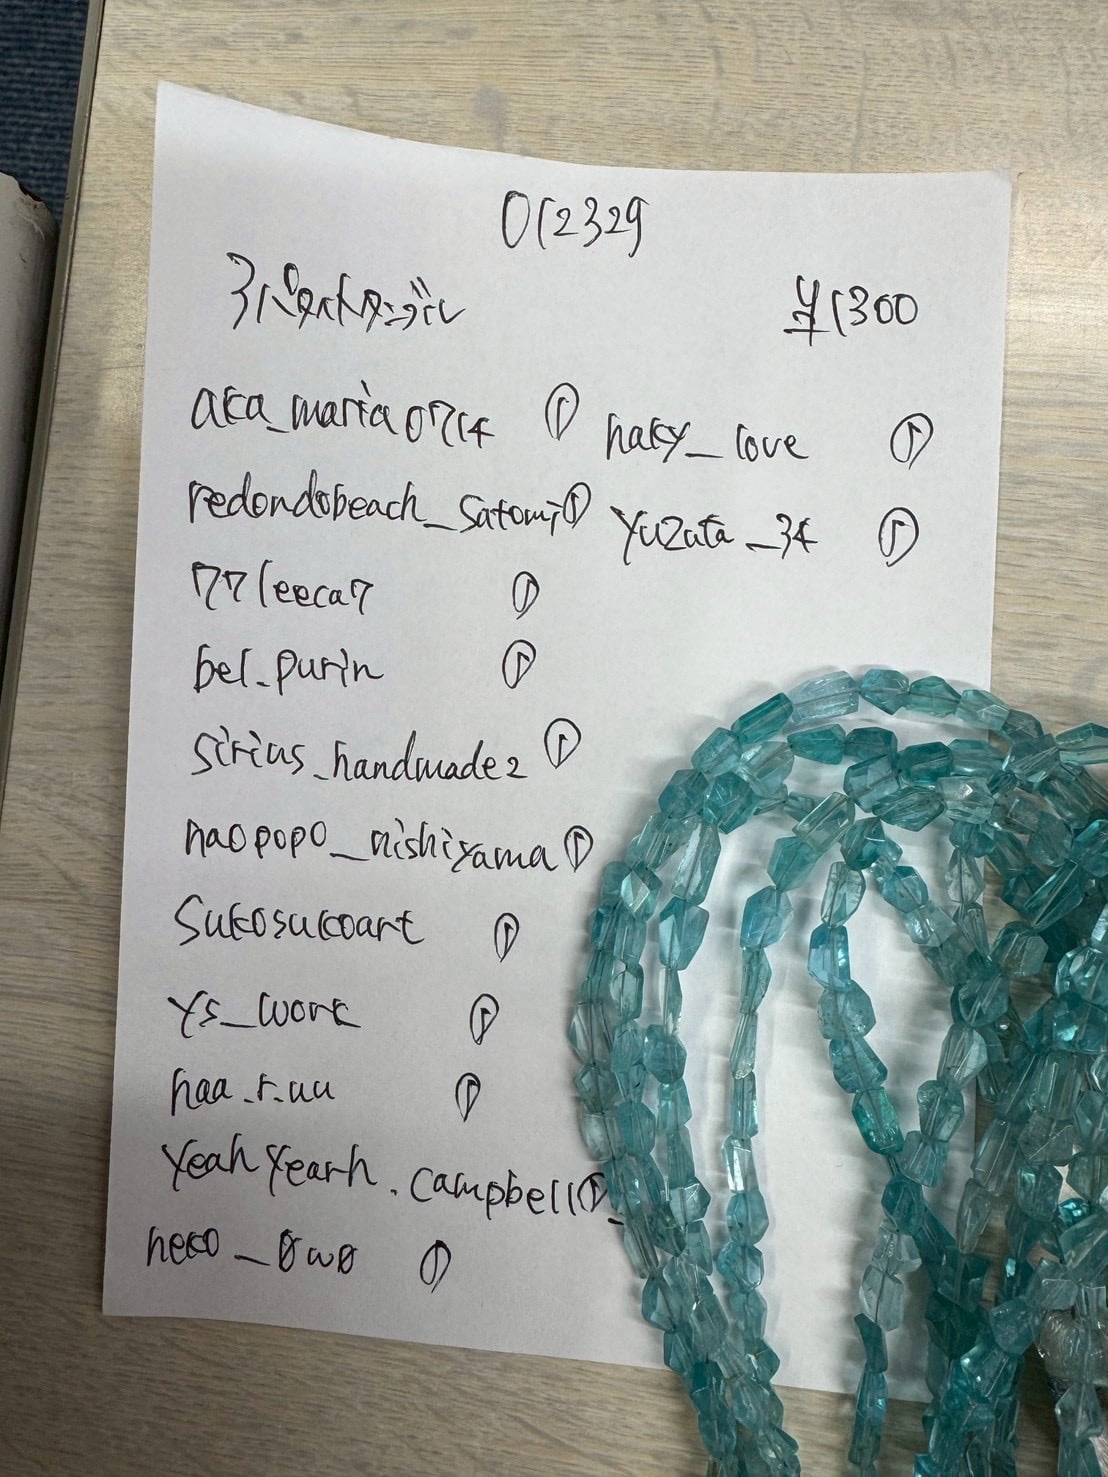 012329
アパタイトタンブル
¥1300
aka_maria0714 ①
redondobeach_satomi ①
77leeca7 ①
bel.purin ①
sirius_handmade2 ①
naopopo_nishiyama ①
sukosukoart ①
ys_work ①
haa.r.uu ①
yeahyearh.campbell ①
neko_0w0 ①
haky_love ①
yuzuta_34 ①